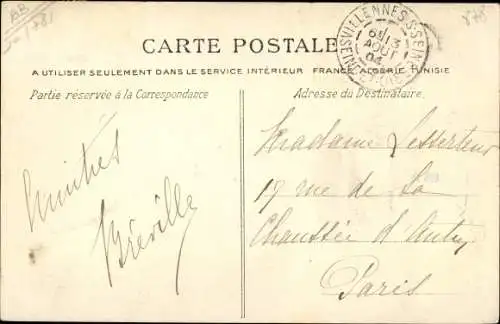 CARTE POSTALE
A UTILISER SEULEMENT DANS LE SERVICE INTÉRIEUR FRANCE, ALGERIE, TUNISIE
Partie réservée à la Correspondance
Adresse du Destinataire.
6E 13
AOUT
04
878
Amitiés
Bréville
Madame Lesserteur
19 rue de La
Chaussée d'Antin
Paris